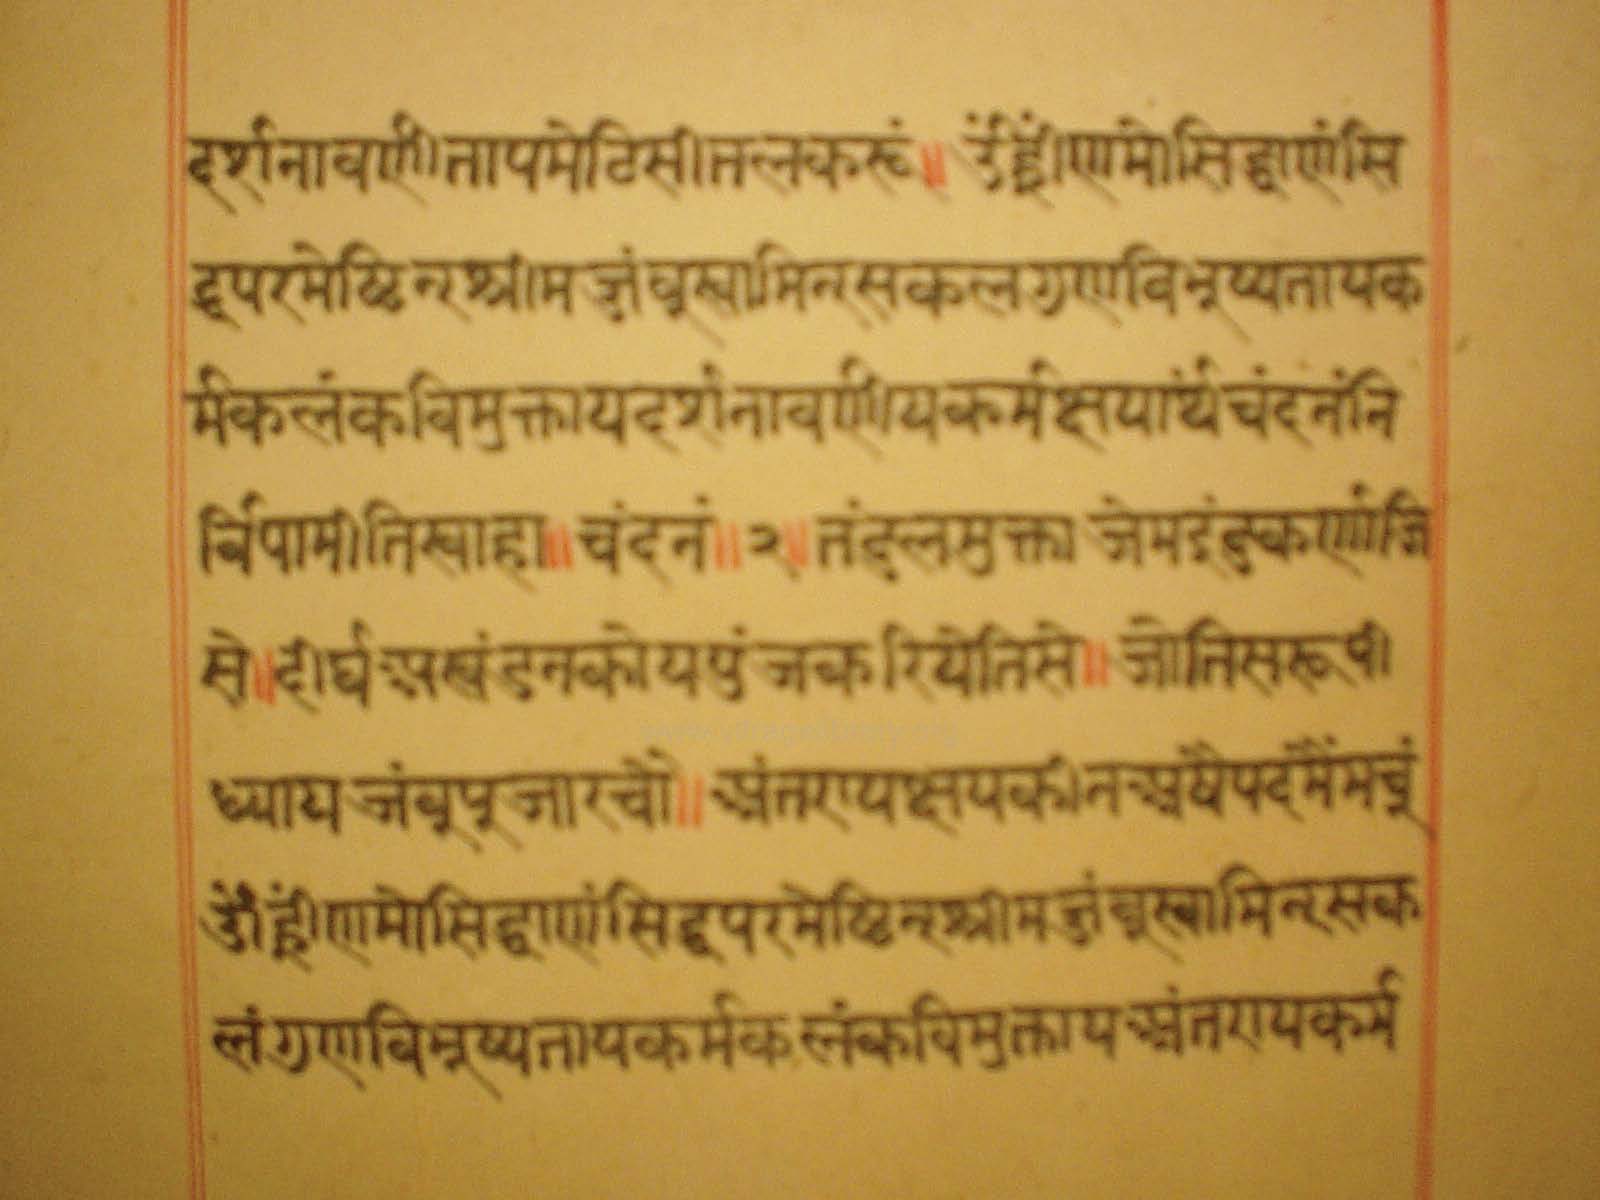 दर्शनावर्णीतापमेटिसीतलकरूं॥ उँह्रींणमोसिद्धाणंसि
द्धपरमेष्ठिन्श्रीमज्जंबूस्वामिन्सकलगणविभूष्यतायक
र्मकलंकविमुक्तायदर्शनावर्णीयकर्मक्षयार्थंचंदनंनि
र्विपामीतिस्वाहा॥ चंदनं॥२॥ तंदुलमुक्ता जेम
से॥ दीर्घअखंडनकोयपुंजकरियेतिसे॥ जोतिसरूपी
ध्याय जंबूपूजारचौ॥ अंतरायक्षयकीनअषैपदमैंमचूं
उँह्रींणमोसिद्धाणंसिद्धपरमेष्ठिन्श्रीमज्जंबूस्वामिन्सक
लंगणविभूष्यतायकर्मकलंकविमुक्ताय अंतरायकर्म